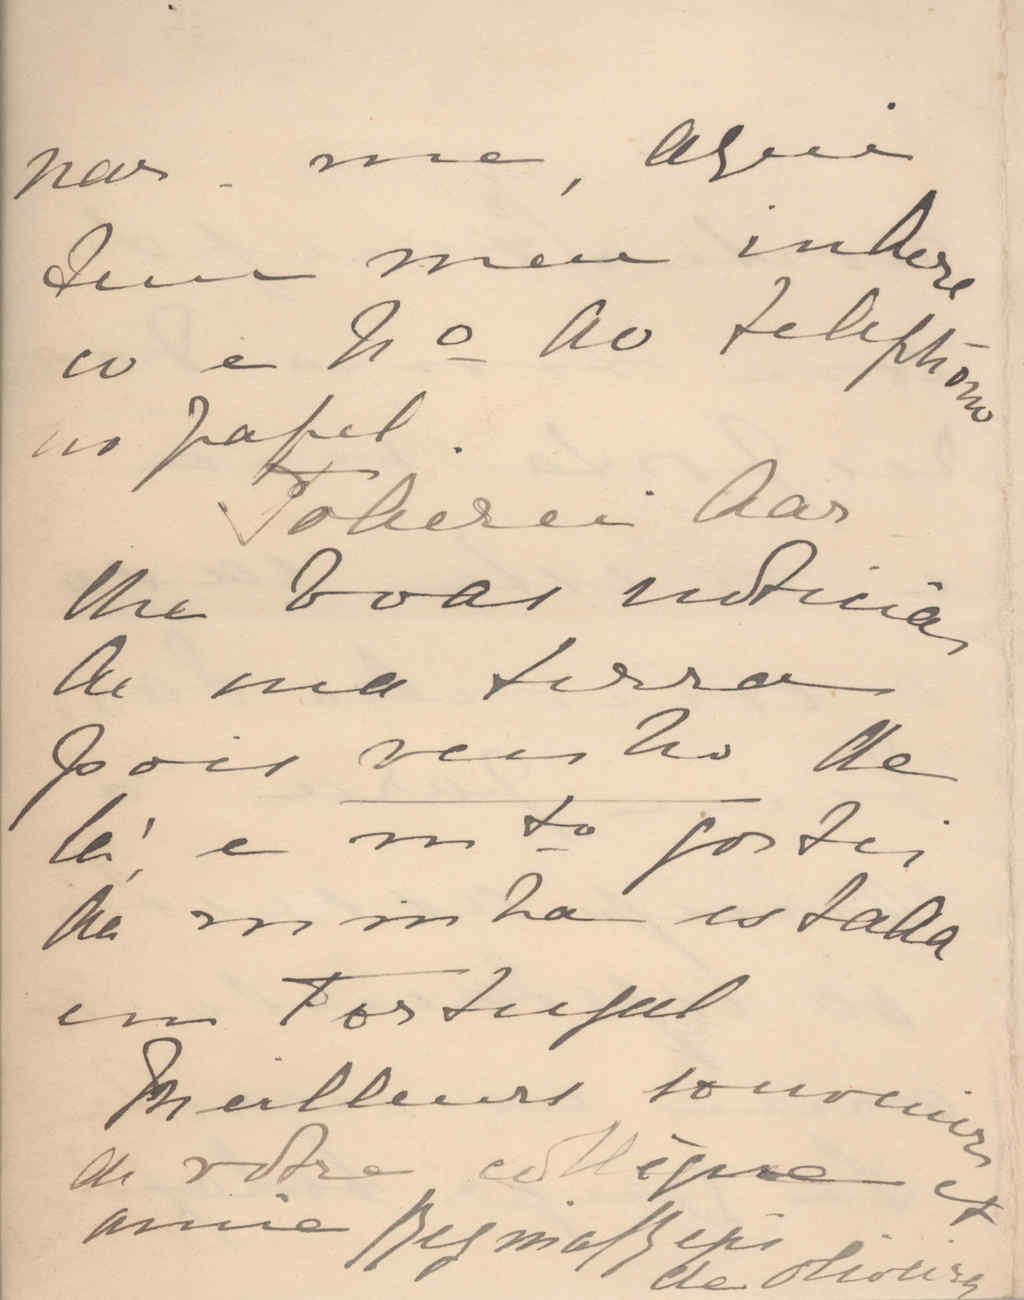 nar-me, aqui
tem meu indere
co e Nº do telephono
no papel.
Poderei dar
lhe boas noticias
de sua terra
pois venho de
lá, e mto gostei
da minha estada
em Portugal
Meilleurs souvenirs
de vôtre collègue et
amie Regina Regis
de Oliveira